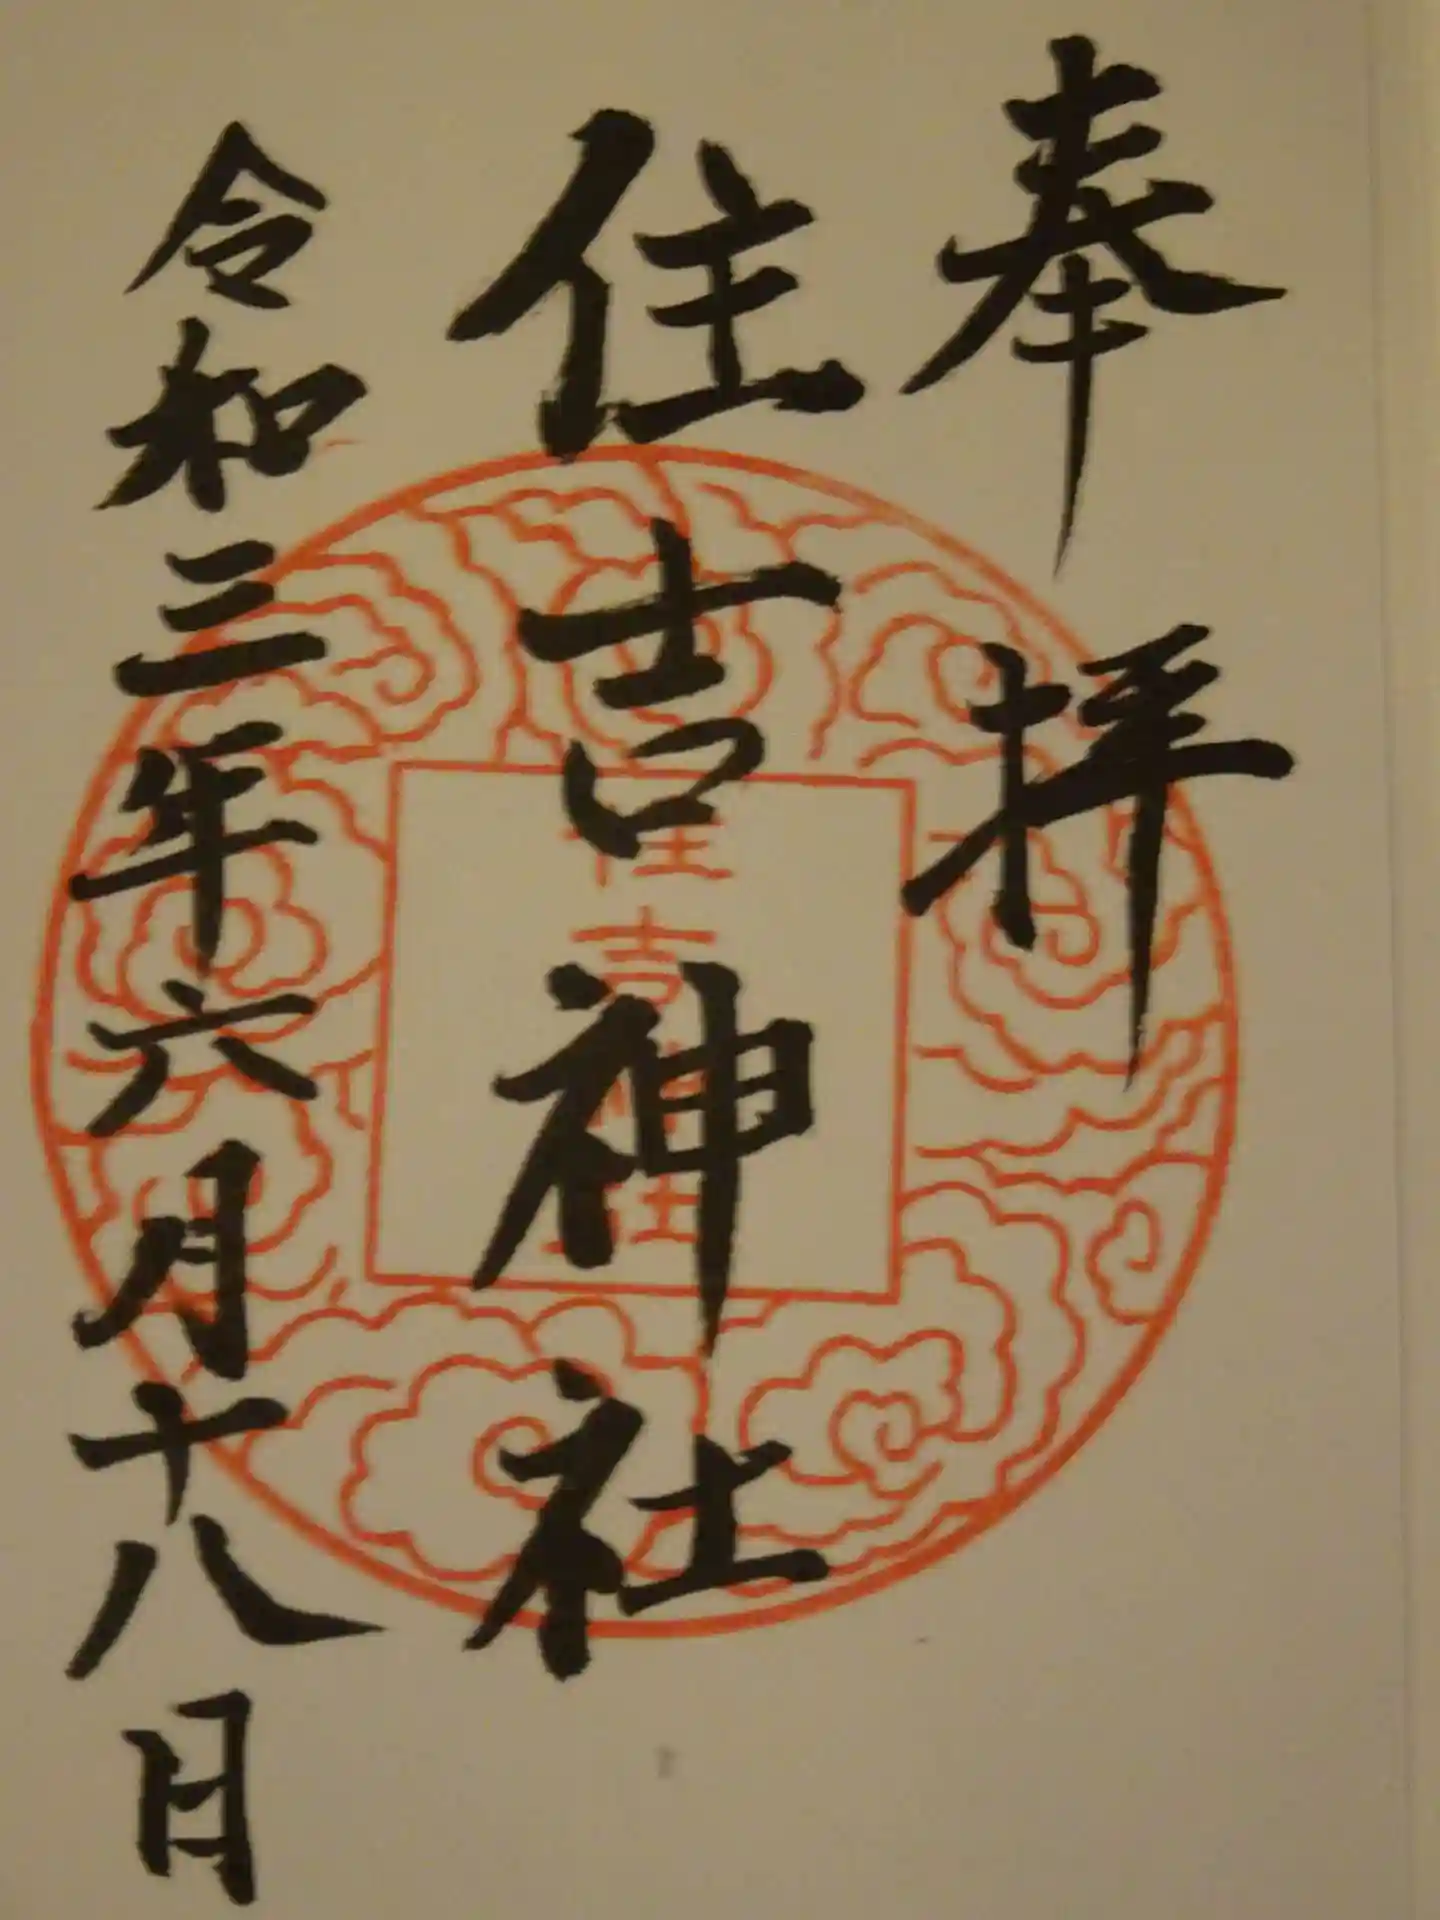 奉拝
住吉神社
住吉神社
令和三年六月十八日